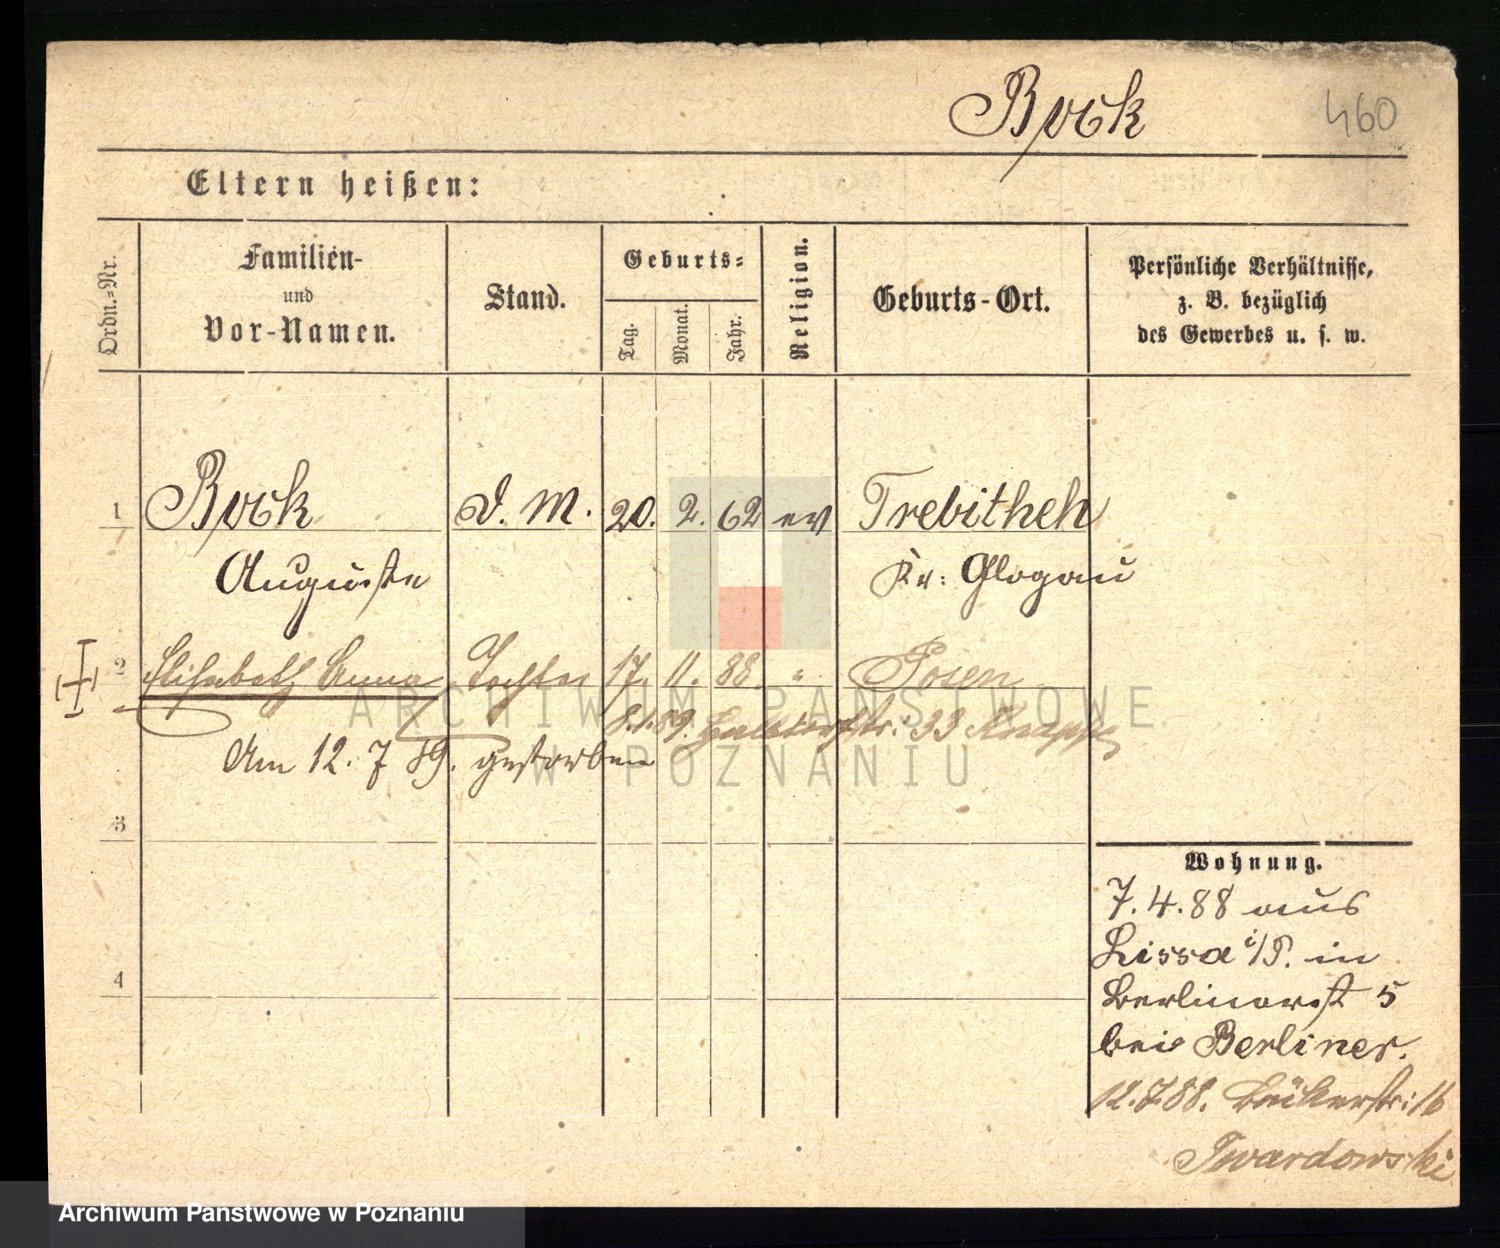 Bock
460
Eltern heißen:
Ordn.=Nr.
Familien-
und
Vor-Namen.
Stand.
Geburts=
Tag.
Monat.
Jahr.
Religion.
Geburts-Ort.
Persönliche Verhältnisse,
z. B. bezüglich
des Gewerbes u. s. w.
1 Bock D. M. 20. 2. 62 ev Trebitsch
Auguste Kr: Glogau
2 Elisabeth Anna Tochter 17. 11. 88. " Posen
8.1.89. Halbdorfstr: 33 Knappe
Am 12. 7 89. gestorben
3
4
Wohnung.
7. 4. 88 aus
Lissa i/P. in
Berlinerst 5
bei Berliner.
12.7.88. Bäckerstr: 16
Twardowski
ARCHIWUM PAŃSTWOWE
W POZNANIU
Archiwum Państwowe w Poznaniu